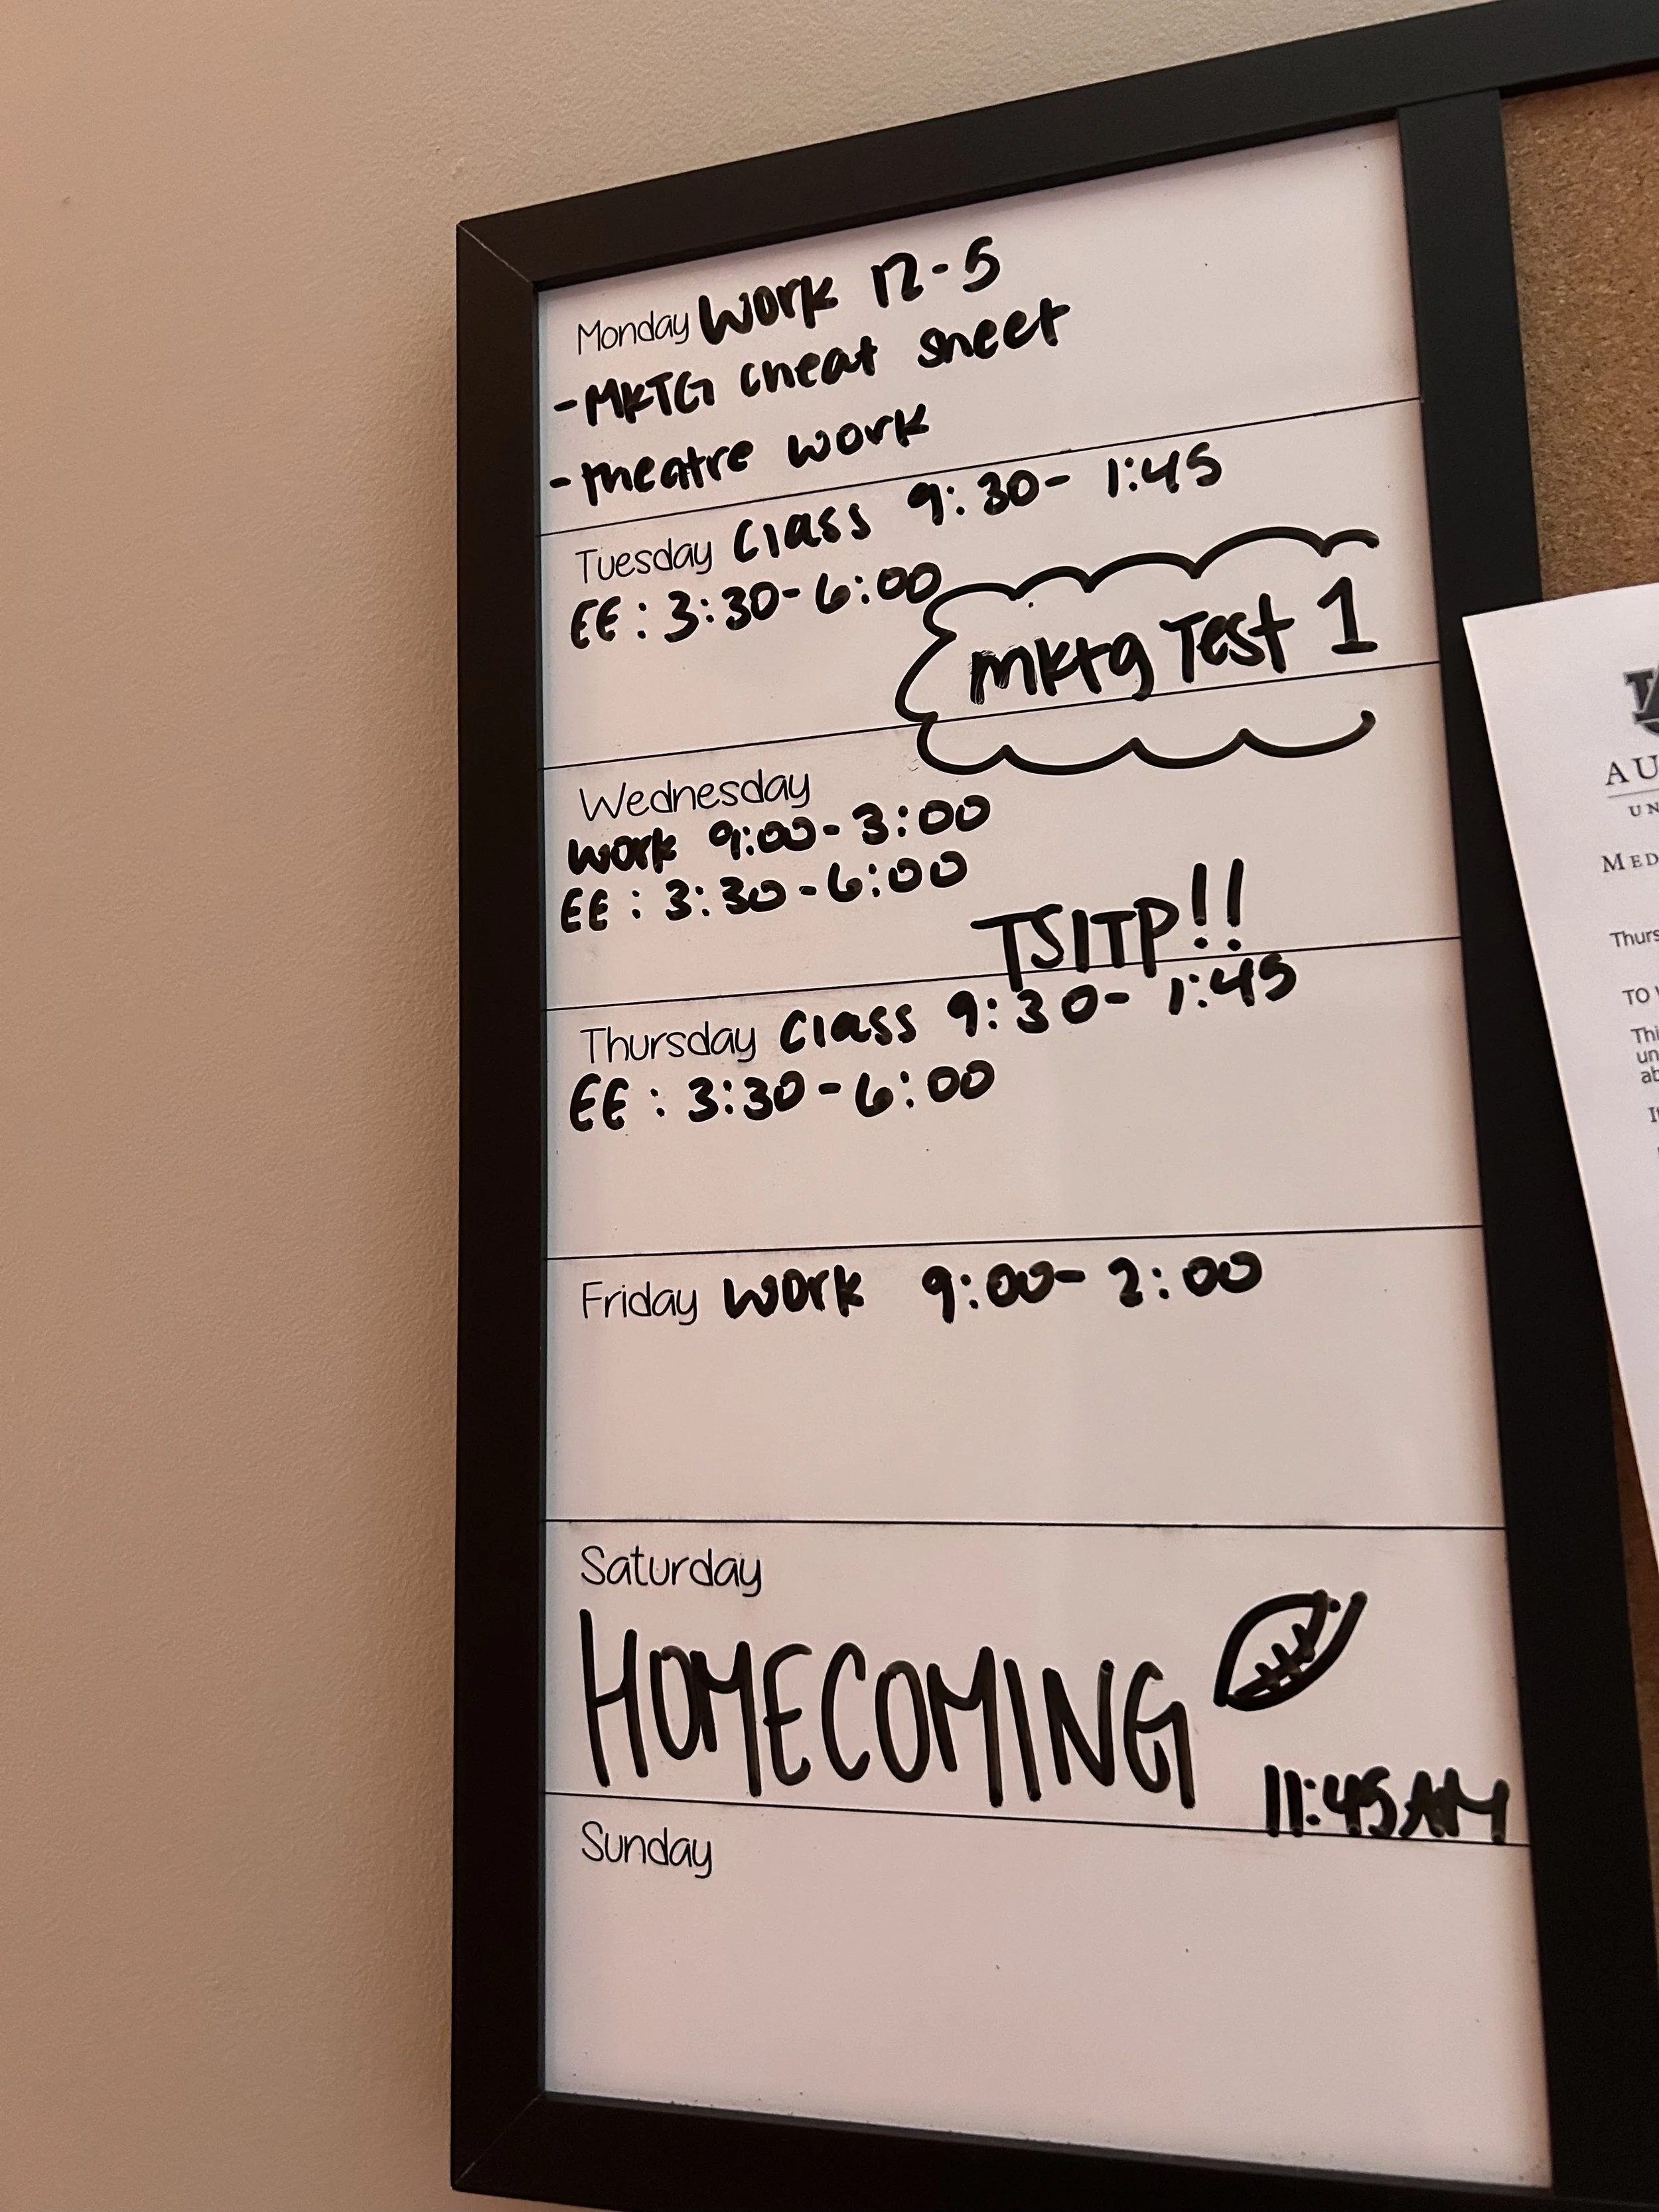 Monday Work 12-5
- MKTG cheat sheet
- theatre work
Tuesday Class 9:30- 1:45
EE: 3:30-6:00
mktg Test 1
Wednesday
Work 9:00-3:00
EE: 3:30-6:00
TSITP!!
Thursday Class 9:30- 1:45
EE: 3:30-6:00
Friday Work 9:00- 2:00
Saturday
HOMECOMING
11:45AM
Sunday
AU
UN
MED
Thurs
TO
Thi
un
ab